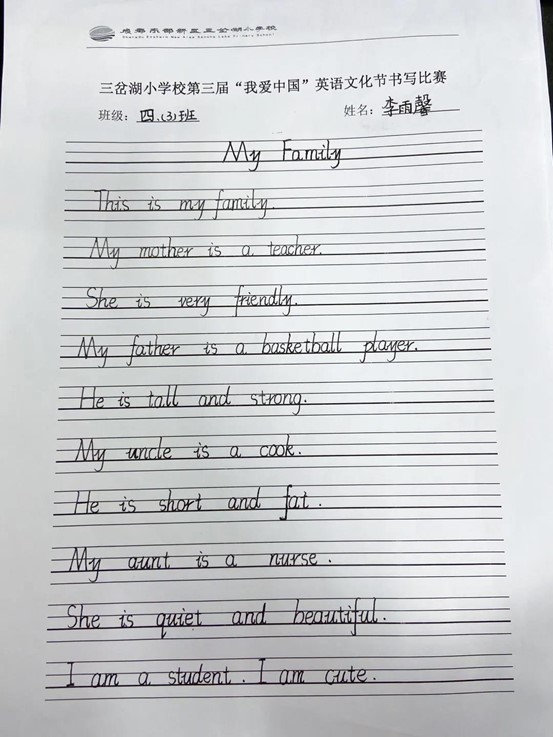 成都东部新区三岔湖小学校
三岔湖小学校第三届“我爱中国”英语文化节书写比赛
班级：四.(3)班 姓名：李雨馨
My Family
This is my family.
My mother is a teacher.
She is very friendly.
My father is a basketball player.
He is tall and strong.
My uncle is a cook.
He is short and fat.
My aunt is a nurse.
She is quiet and beautiful.
I am a student. I am cute.